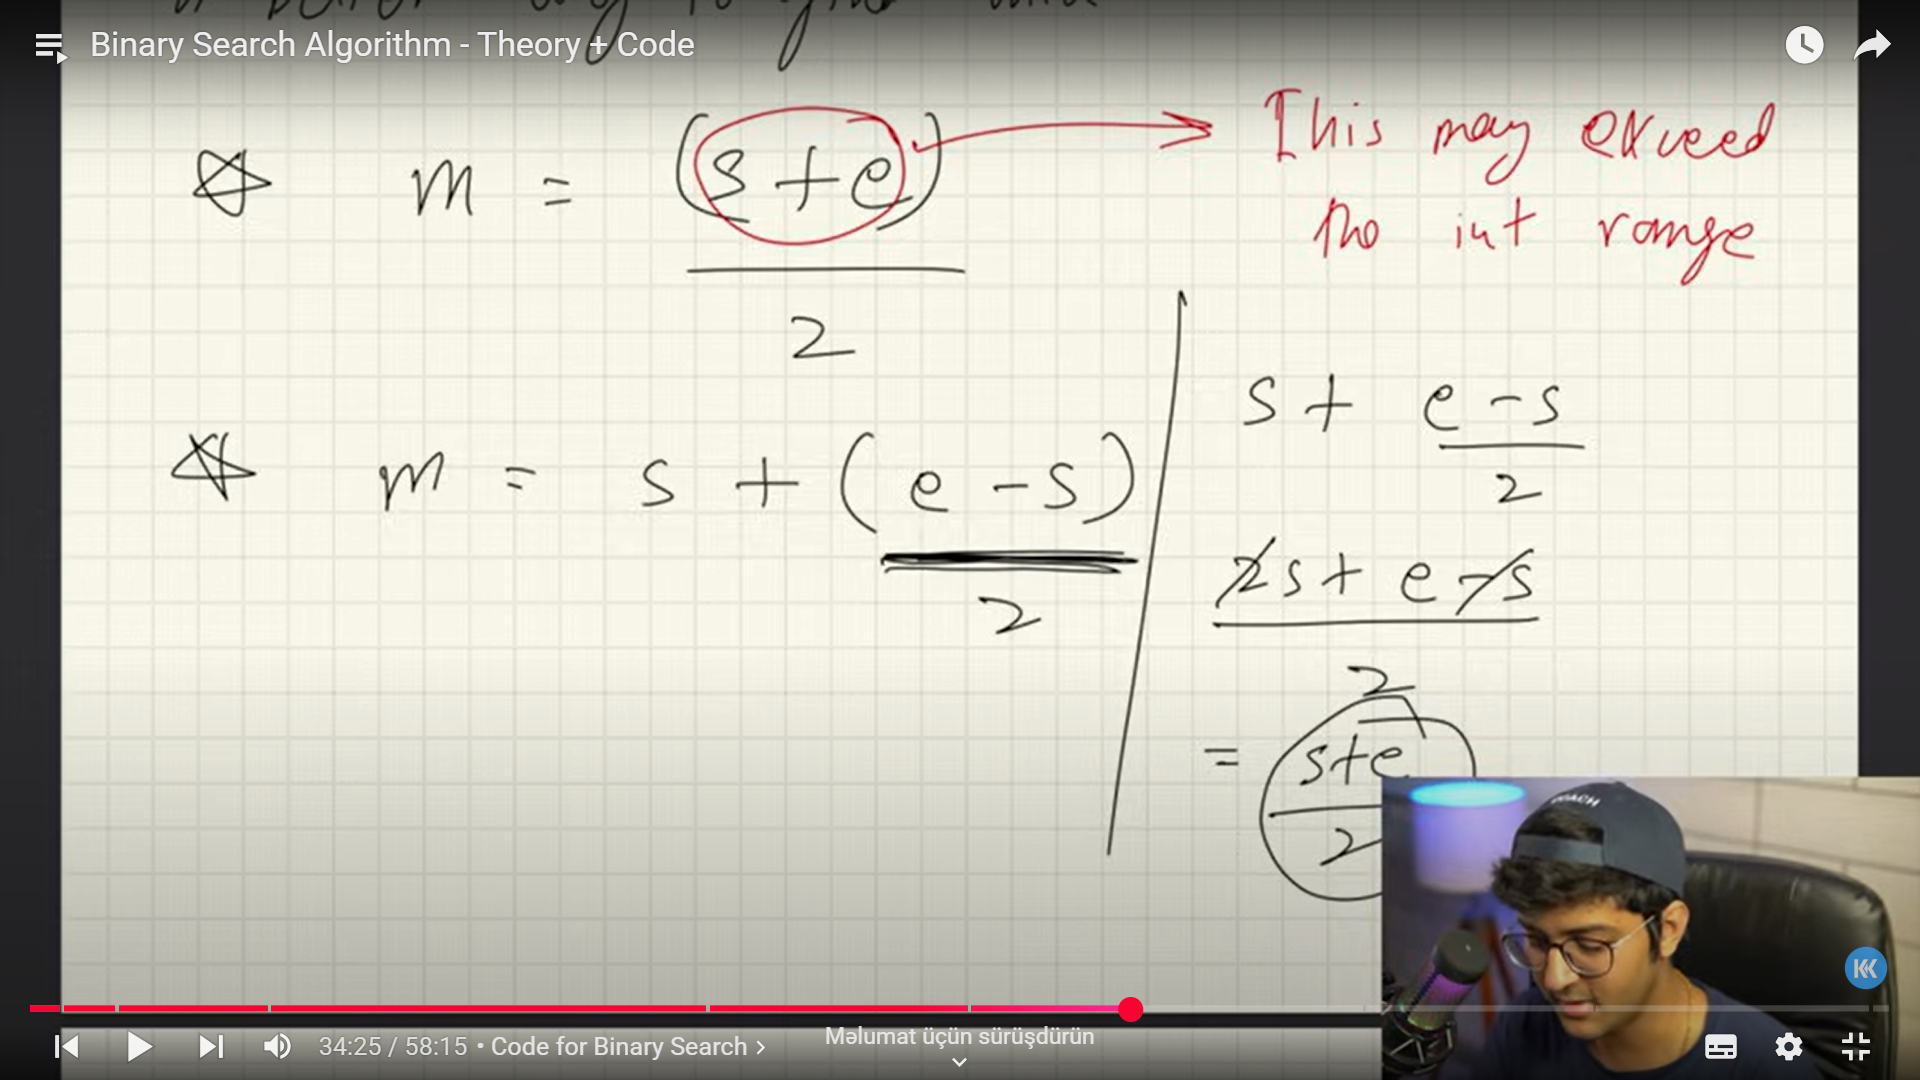 Binary Search Algorithm - Theory + Code
m = (s+e)
2
This may exceed
the int range
m = s + (e - s)
2
s + e - s
2
2s + e - s
2
= s+e
2
COACH
34:25 / 58:15 • Code for Binary Search
Məlumat üçün sürüşdürün